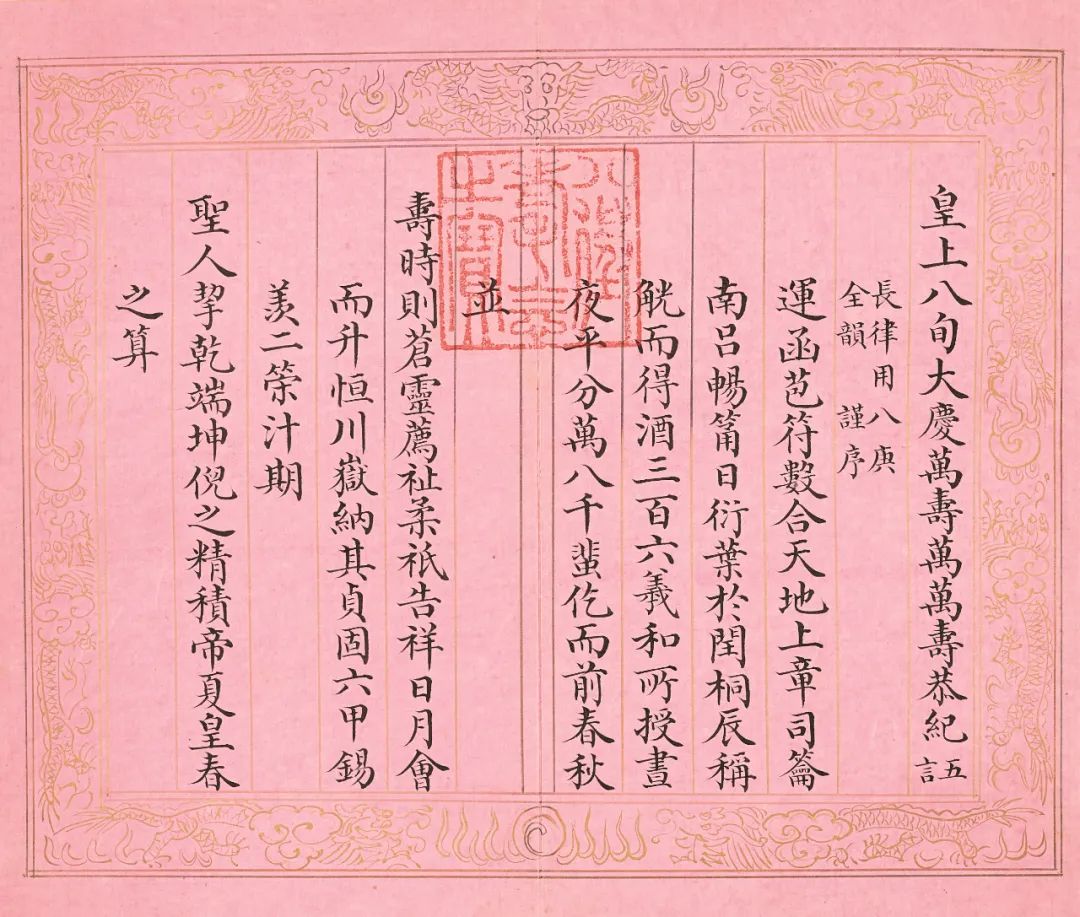 皇上八旬大慶萬壽萬萬壽恭紀五言
長律用八庚
全韻 謹序
運函苞符數合天地上章司籥
南呂暢筩日衍葉於閏桐辰稱
觥而得酒三百六羲和所授晝
夜平分萬八千蜚仡而前春秋
並
壽時則蒼靈薦祉柔祇告祥日月會
而升恒川嶽納其貞固六甲錫
羨二筞汁期
聖人挈乾端坤倪之精積帝夏皇春
之算
八徵耄念之寶